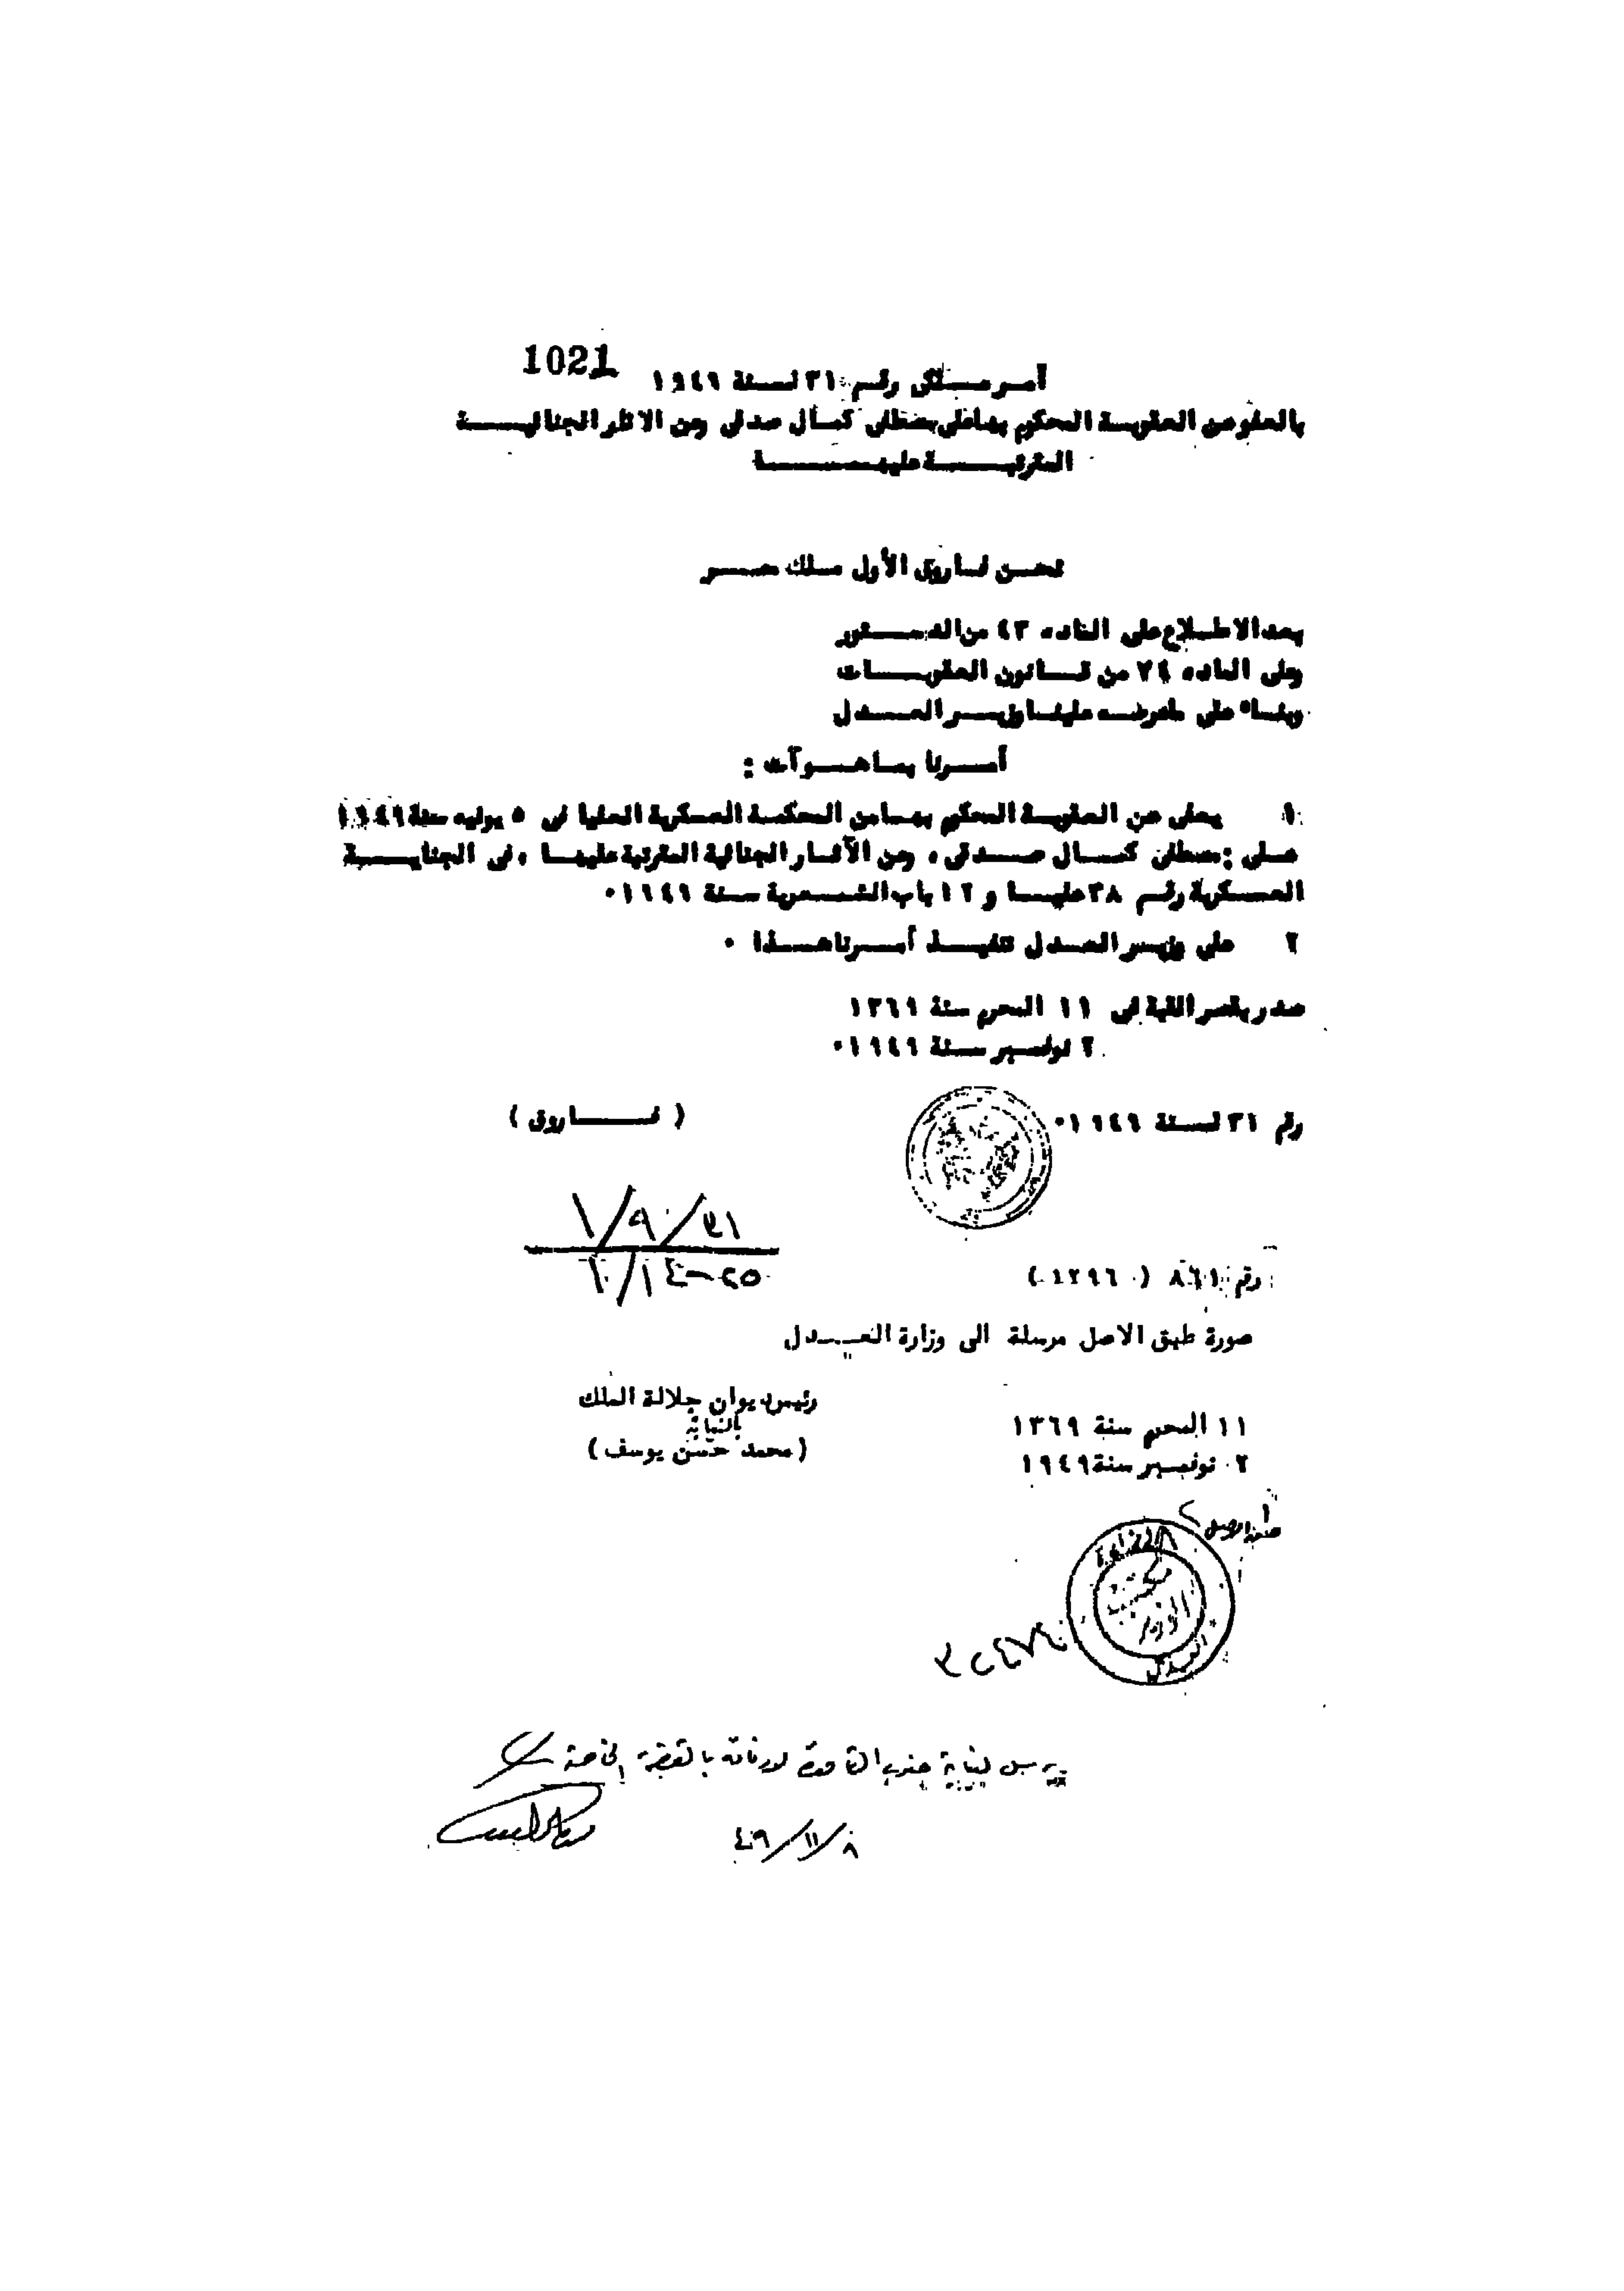 1021
أمر ملكى رقم ٣١ لسنة ١٩٤٩
بالعفو عن العقوبة المحكوم بها على مصطفى كمال صدقى وعن الاثار الجنائية
المترتبة عليها
نحن فاروق الأول ملك مصر
بعد الاطلاع على الماده ٤٣ من الدستور
وعلى الماده ٧٤ من قانون العقوبات
وبناء على ماعرضه علينا وزير العدل
أمرنا بما هو آت :
١ يعفى عن العقوبة المحكوم بها من المحكمة العسكرية العليا فى ٥ يوليه سنة ١٩٤٩
على : مصطفى كمال صدقى ، وعن الآثار الجنائية المترتبة عليها ، فى الجناية
العسكرية رقم ٣٨ عليا و ١٢ باب الشعرية سنة ١٩٤٩٠
٢ على وزير العدل تنفيذ أمرنا هذا ٠
صدر بقصر القبة فى ١١ المحرم سنة ١٣٦٩
٢ نوفمبر سنة ١٩٤٩٠
رقم ٣١ لسنة ١٩٤٩٠
( فاروق )
٢١/٩/١
٢٥-١٤/١
رقم ٨٦١ ( ١٢٩٦ )
صورة طبق الاصل مرسلة الى وزارة العدل
رئيس ديوان جلالة الملك
بالنيابة
(محمد حسن يوسف )
١١ المحرم سنة ١٣٦٩
٢ نوفمبر سنة ١٩٤٩
العدل
يرسل لنيابة جنوب القاهرة لارفاقه بالقضية الخاصة
٨/١١/٤٩